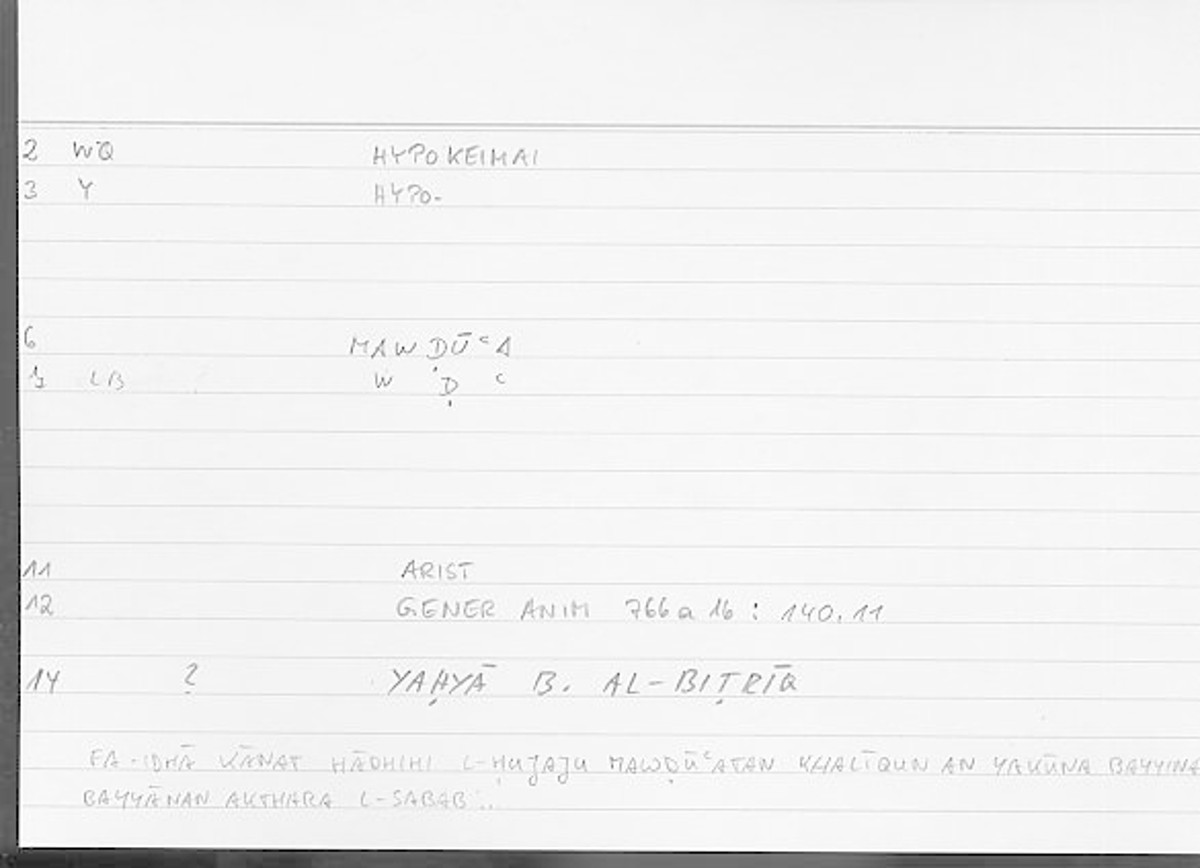 2 WQ HYPOKEIMAI
3 Y HYPO-
6 MAWḌŪʿA
LB W Ḍ ʿ
11 ARIST
12 GENER ANIM 766a16 : 140.11
14 ? YAḤYĀ B. AL-BIṬRĪQ
FA-IDHĀ KĀNAT HĀDHIHI L-ḤUJAJU MAWḌŪʿATAN KHALĪQUN AN YAKŪNA BAYYINA
BAYYĀNAN AKTHARA L-SABAB...